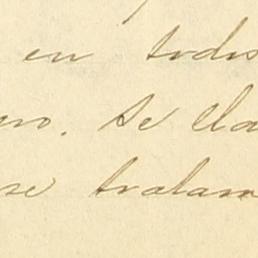 en todos
ero. Se lla
se tratam